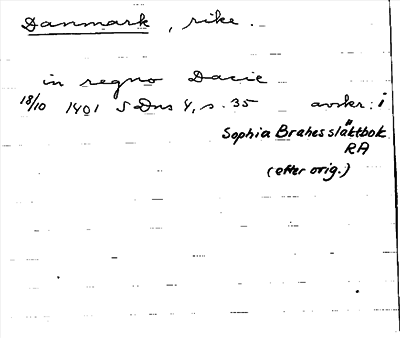 Danmark, rike.
in regno Dacie
18/10 1401 SDns 4, s. 35 avskr. i
Sophia Brahes släktbok
RA
(efter orig.)